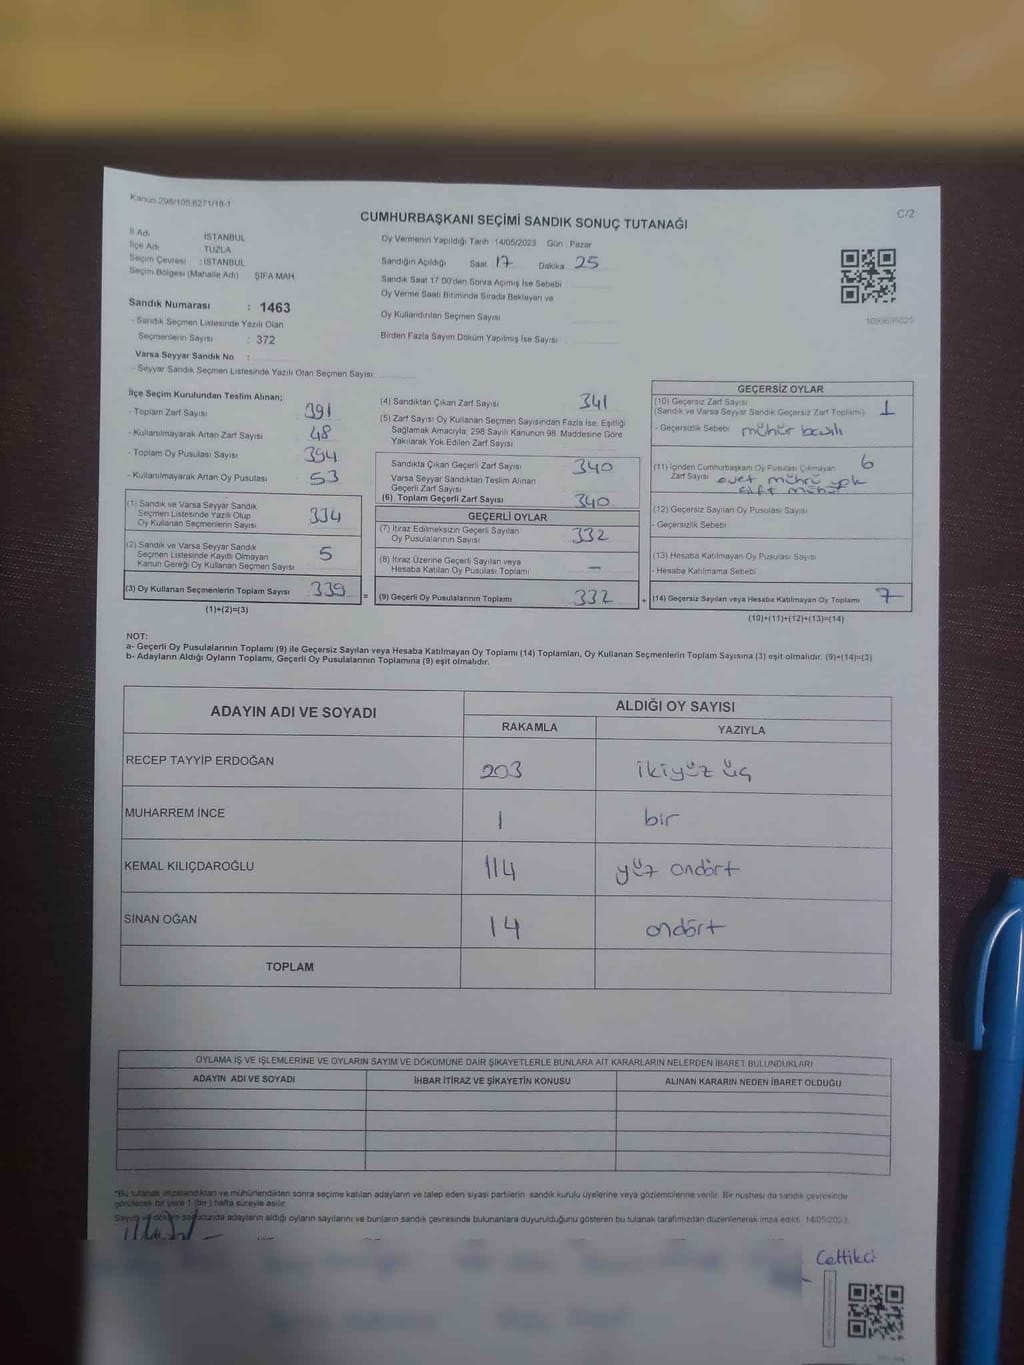 Kanun 298/105,6271/18-1
CUMHURBAŞKANI SEÇİMİ SANDIK SONUÇ TUTANAĞI
C/2
İl Adı İSTANBUL
İlçe Adı TUZLA
Seçim Çevresi : İSTANBUL
Seçim Bölgesi (Mahalle Adı) ŞİFA MAH
Sandık Numarası : 1463
- Sandık Seçmen Listesinde Yazılı Olan
Seçmenlerin Sayısı : 372
Varsa Seyyar Sandık No :
- Seyyar Sandık Seçmen Listesinde Yazılı Olan Seçmen Sayısı:
Oy Vermenin Yapıldığı Tarih 14/05/2023 Gün Pazar
Sandığın Açıldığı Saat 17 Dakika 25
Sandık Saat 17 00'den Sonra Açılmış İse Sebebi
Oy Verme Saati Bitiminde Sırada Bekleyen ve
Oy Kullandırılan Seçmen Sayısı
Birden Fazla Sayım Döküm Yapılmış İse Sayısı
İlçe Seçim Kurulundan Teslim Alınan;
- Toplam Zarf Sayısı 391
- Kullanılmayarak Artan Zarf Sayısı 48
- Toplam Oy Pusulası Sayısı 394
- Kullanılmayarak Artan Oy Pusulası 53
(1) Sandık ve Varsa Seyyar Sandık
Seçmen Listesinde Yazılı Olup
Oy Kullanan Seçmenlerin Sayısı 334
(2) Sandık ve Varsa Seyyar Sandık
Seçmen Listesinde Kayıtlı Olmayan
Kanun Gereği Oy Kullanan Seçmen Sayısı 5
(3) Oy Kullanan Seçmenlerin Toplam Sayısı 339
(1)+(2)=(3)
(4) Sandıktan Çıkan Zarf Sayısı 341
(5) Zarf Sayısı Oy Kullanan Seçmen Sayısından Fazla İse, Eşitliği
Sağlamak Amacıyla; 298 Sayılı Kanunun 98. Maddesine Göre
Yakılarak Yok Edilen Zarf Sayısı
Sandıkta Çıkan Geçerli Zarf Sayısı 340
Varsa Seyyar Sandıktan Teslim Alınan
Geçerli Zarf Sayısı
(6) Toplam Geçerli Zarf Sayısı 340
GEÇERLİ OYLAR
(7) İtiraz Edilmeksizin Geçerli Sayılan
Oy Pusulalarının Sayısı 332
(8) İtiraz Üzerine Geçerli Sayılan veya
Hesaba Katılan Oy Pusulası Toplamı —
= (9) Geçerli Oy Pusulalarının Toplamı 332
GEÇERSİZ OYLAR
(10) Geçersiz Zarf Sayısı
(Sandık ve Varsa Seyyar Sandık Geçersiz Zarf Toplamı) 1
- Geçersizlik Sebebi mühür basılı
(11) İçinden Cumhurbaşkanı Oy Pusulası Çıkmayan 6
Zarf Sayısı evet mührü yok
çift mühür
(12) Geçersiz Sayılan Oy Pusulası Sayısı
- Geçersizlik Sebebi
(13) Hesaba Katılmayan Oy Pusulası Sayısı
- Hesaba Katılmama Sebebi
+ (14) Geçersiz Sayılan veya Hesaba Katılmayan Oy Toplamı 7
(10)+(11)+(12)+(13)=(14)
NOT:
a- Geçerli Oy Pusulalarının Toplamı (9) ile Geçersiz Sayılan veya Hesaba Katılmayan Oy Toplamı (14) Toplamları, Oy Kullanan Seçmenlerin Toplam Sayısına (3) eşit olmalıdır. (9)+(14)=(3)
b- Adayların Aldığı Oyların Toplamı, Geçerli Oy Pusulalarının Toplamına (9) eşit olmalıdır.
ADAYIN ADI VE SOYADI
ALDIĞI OY SAYISI
RAKAMLA YAZIYLA
RECEP TAYYİP ERDOĞAN 203 ikiyüz üç
MUHARREM İNCE 1 bir
KEMAL KILIÇDAROĞLU 114 yüz ondört
SİNAN OĞAN 14 ondört
TOPLAM
OYLAMA İŞ VE İŞLEMLERİNE VE OYLARIN SAYIM VE DÖKÜMÜNE DAİR ŞİKAYETLERLE BUNLARA AİT KARARLARIN NELERDEN İBARET BULUNDUKLARI
ADAYIN ADI VE SOYADI İHBAR İTİRAZ VE ŞİKAYETİN KONUSU ALINAN KARARIN NEDEN İBARET OLDUĞU
*Bu tutanak imzalandıktan ve mühürlendikten sonra seçime katılan adayların ve talep eden siyasi partilerin sandık kurulu üyelerine veya gözlemcilerine verilir. Bir nüshası da sandık çevresinde
görülecek bir yere 1 (bir ) hafta süreyle asılır.
Sayım ve döküm sonucunda adayların aldığı oyların sayılarını ve bunların sandık çevresinde bulunanlara duyurulduğunu gösteren bu tutanak tarafımızdan düzenlenerek imza edildi. 14/05/2023